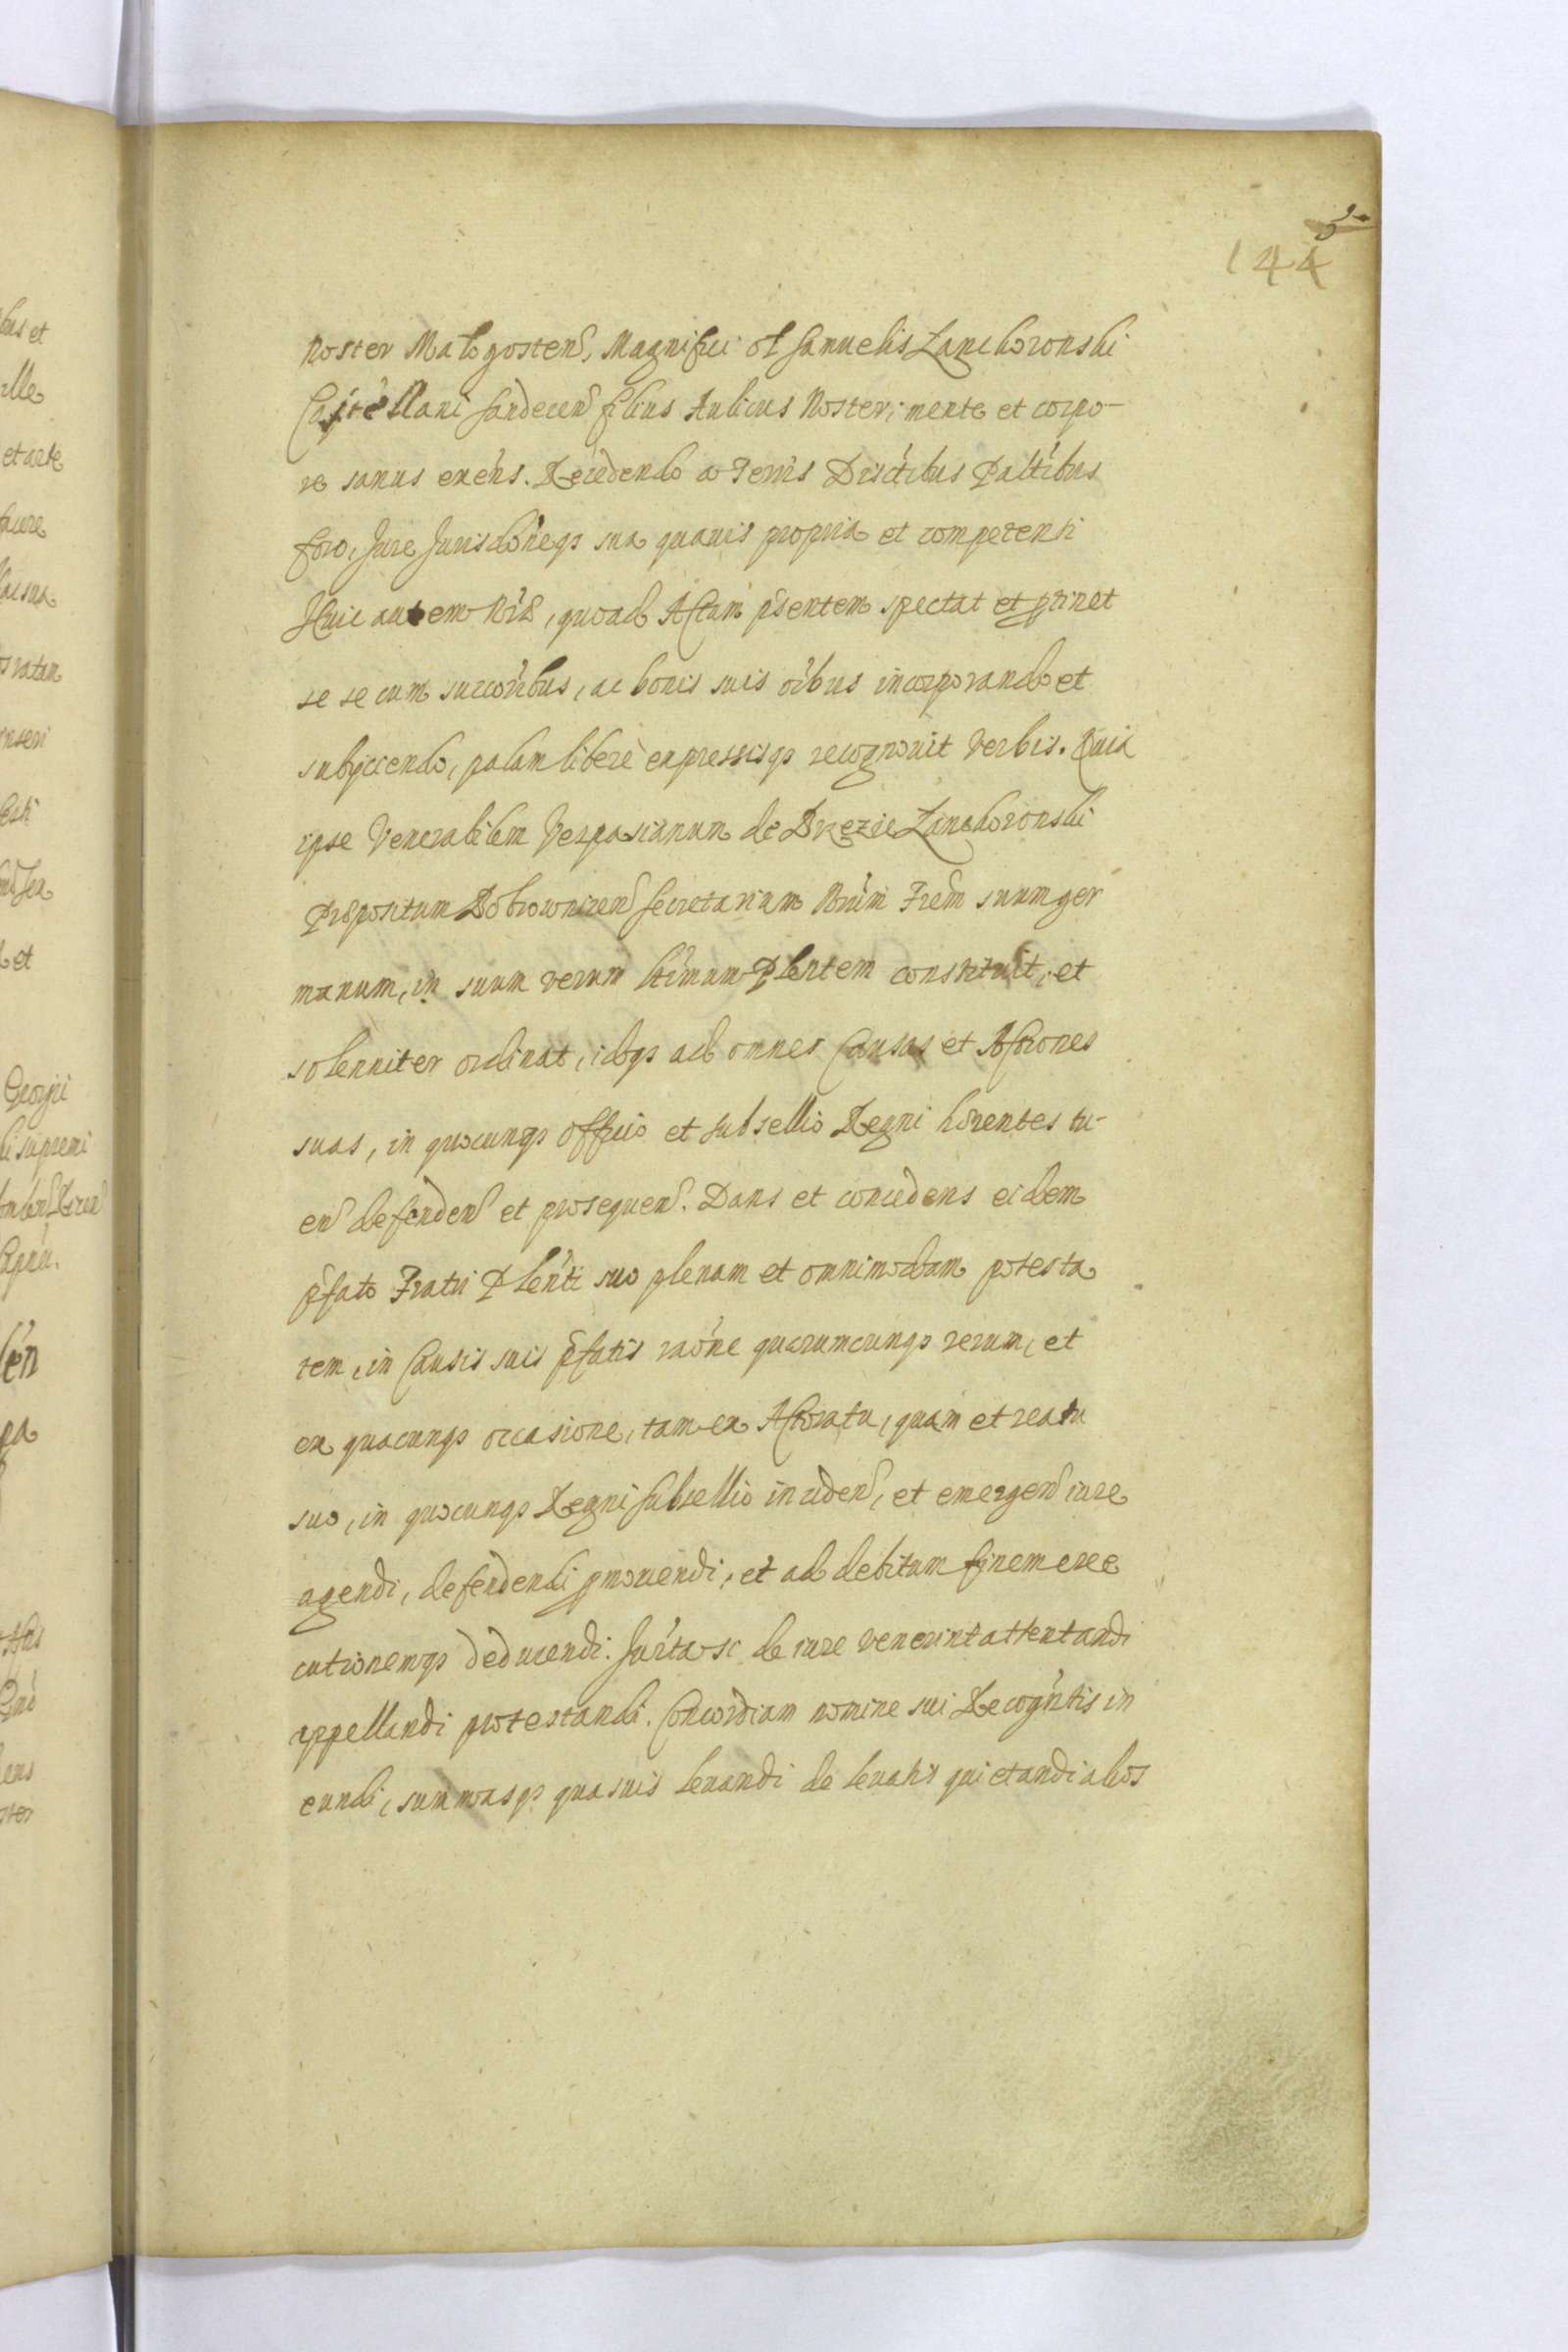 144
noster Malogosten, Magnifici ol Samuelis Lanckoronski
Castellani Sandecen filius Aulicus Noster, mente et corpo-
re sanus exens. Recedendo a Terris Districtibus Palatibus
foro, Jure Jurisdoneqз sua quavis propria et competenti
Huic autem Nrae, quoad Actum pnsentem spectat et ptinet
se se cum succoribus, ac bonis suis oibus incorporando et
subyciendo, palam libere expressisqз recognovit verbis. Quia
ipse Venerabilem Vespasianum de Brzezie Lanckoronski
Praepositum Dobrowicen Secretarium Nrum Frem suum ger
manum, in suum verum ltimum Plentem constituit, et
solenniter ordinat, idqз ad omnes Causas et Actiones
suas, in quocunqз officio et subsellio Regni hærentes tu-
en defenden et prosequen. Dans et concedens eidem
pfato Fratri Plenti suo plenam et omnimodam potesta
tem, in Causis suis pfatis raone quarumcunqз rerum, et
ex quacunqз occasione, tam ex Actoratu, quam et reatu
suo, in quocunqз Regni subsellio inciden, et emergen iure
agendi, defendendi pmovendi, et ad debitum finem exe
cutionemqз deducendi. Jurta si de iure venerint attentandi
appellandi protestandi. Concordiam nomine sui Recogntis in
eundi, summasqз quasvis levandi de levatis quietandi alios
bus et
ille
et arte
Georgii
li supremi